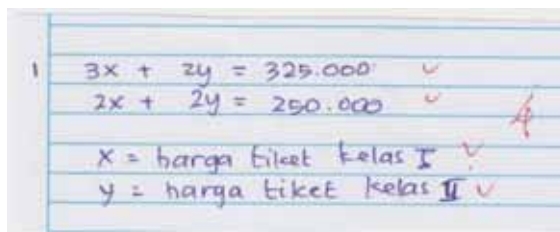 1 3x + 2y = 325.000
2x + 2y = 250.000
x = harga tiket kelas I
y = harga tiket kelas II
4